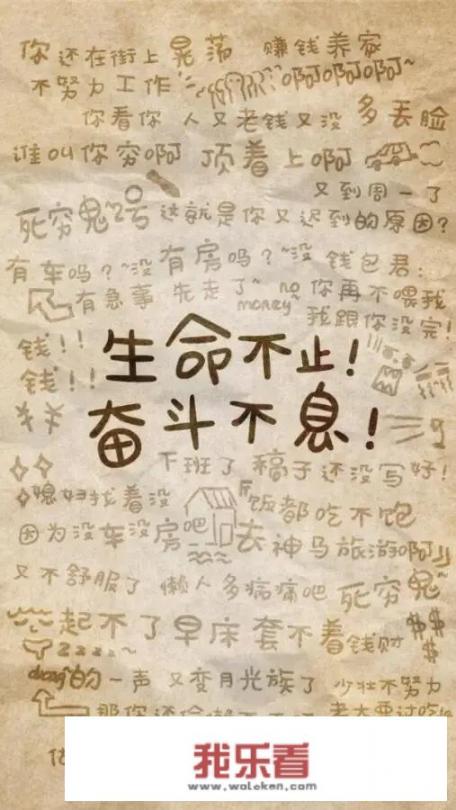 你还在街上晃荡 赚钱养家
不努力工作 啊啊啊啊~
你看你 人又老钱又没 多丢脸
谁叫你穷啊 顶着上啊
又到周一了
死穷鬼2号 这就是你又迟到的原因?
有车吗?~没有房吗?~没 钱包君:
有急事 先走了~ no money~ 你再不喂我
我跟你没完!
钱!!
钱!!
生命不止!
奋斗不息!
下班了 稿子还没写好!
媳妇找着没
饭都吃不饱
因为没车没房吧 去神马旅游啊!!
又不舒服了 懒人多病痛吧 死穷鬼~
起不了早床套不着钱财 $$
Zzzz~ $$
duang的一声 又变月光族了 少壮不努力
我乐看
www.woleken.com